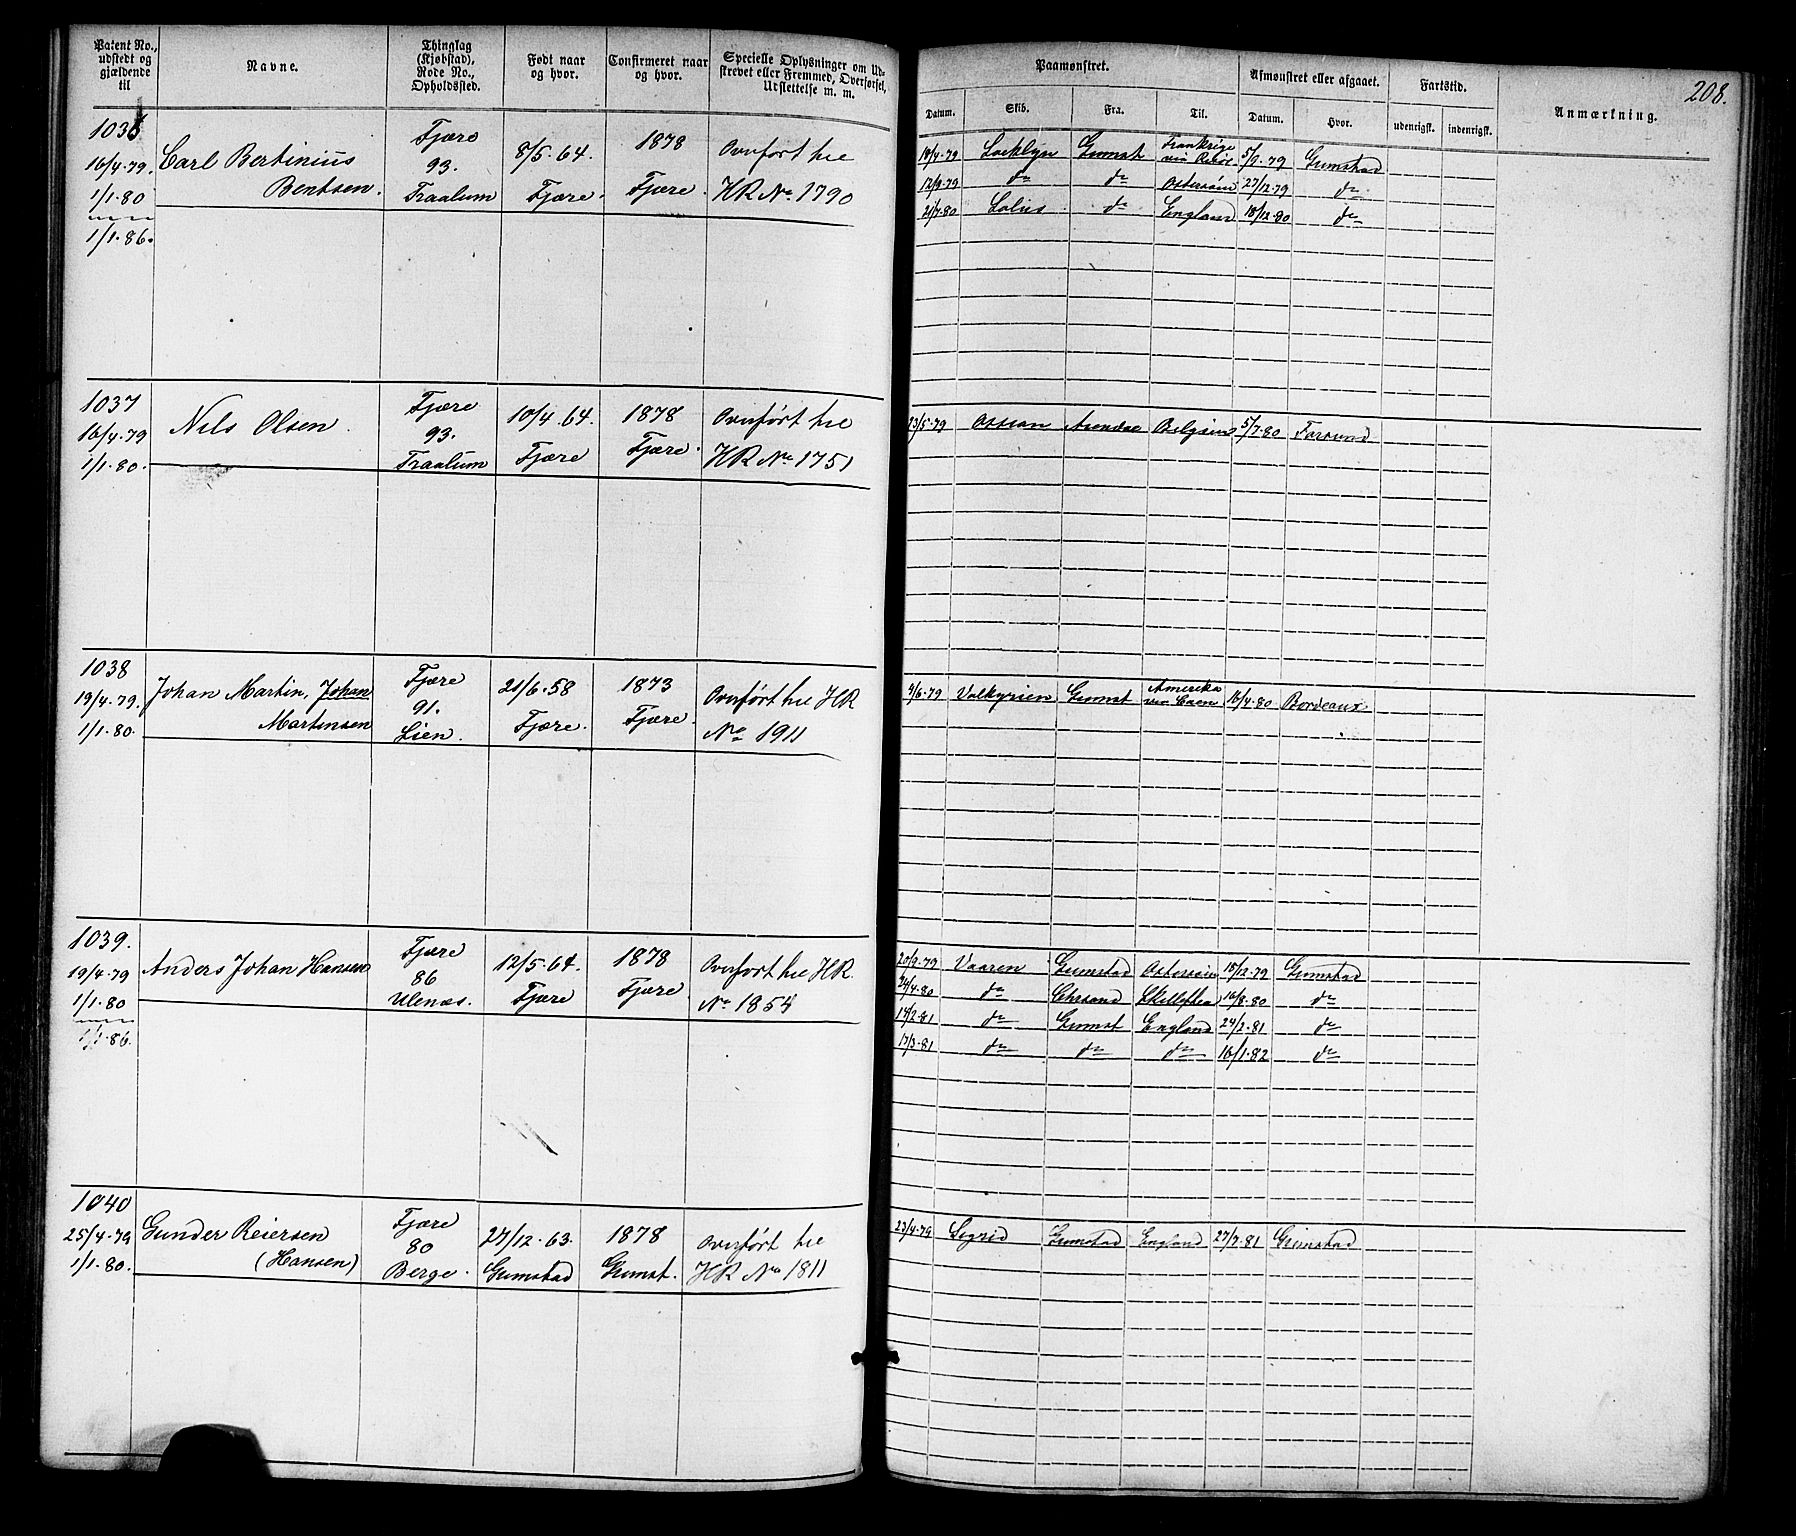 208.
Patent No., udstedt og gjældende til
Navne.
Thinglag (Kjøbstad), Rode No., Opholdssted.
Født naar og hvor.
Confirmeret naar og hvor.
Specielle Oplysninger om Udstrevet eller Fremmed, Overførsel, Udslettelse m. m.
Paamønstret.
Afmønstret eller afgaaet.
Fartstid.
Anmærkning.
Datum.
Skib.
Fra.
Til.
Datum.
Hvor.
udenrigsk.
indenrigsk.
1036
16/4.79.
1/1.80
1/1.86.
Carl Bertinius
Bentsen.
Fjære
93.
Traalum
8/5.64.
Fjære.
1878
Fjære.
Overført til
HR No. 1790
18/4.79 Grimst Frankrige 5/9.79 Grimstad
12/9.79 do do Østersøen 27/12.79 do
21/7.80 do England 18/12.80 do
1037
16/4.79
1/1.80.
Nils Olsen.
Fjære
93.
Traalum
10/4.64.
Fjære
1878
Fjære.
Overført til
HR No 1751
23/5.79 Ossian Arendal Belgien 5/7.80 Farsund
1038
19/4.79.
1/1.80.
Johan Martin, Johan
Martinsen
Fjære
91.
Lien.
21/6.58
Fjære.
1873
Fjære.
Overført til HR
No 1911
9/6.79 Valkyrien Grimst Amerika 16/4.80 Bordeaux
1039.
19/4.79
1/1.80
1/1.86.
Anders Johan Hansen
Fjære
86
Ulenæs.
12/5.64.
Fjære
1878
Fjære
Overført til HR
No 1854
20/9.79 Vaaren Grimstad Østersøen 18/12.79 Grimstad
24/4.80 do Chrsand Skelleftea 16/8.80 do
14/2.81 do Grimst England 24/2.81 do
17/3.81 do do do 16/1.82 do
1040
25/4.79
1/1.80.
Gunder Reiersen
(Hansen)
Fjære
80
Berge.
27/12.63.
Grimstad
1878
Grimst.
Overført til
HR No 1811
23/4.79 Sigrid Grimstad England 27/7.81 Grimstad